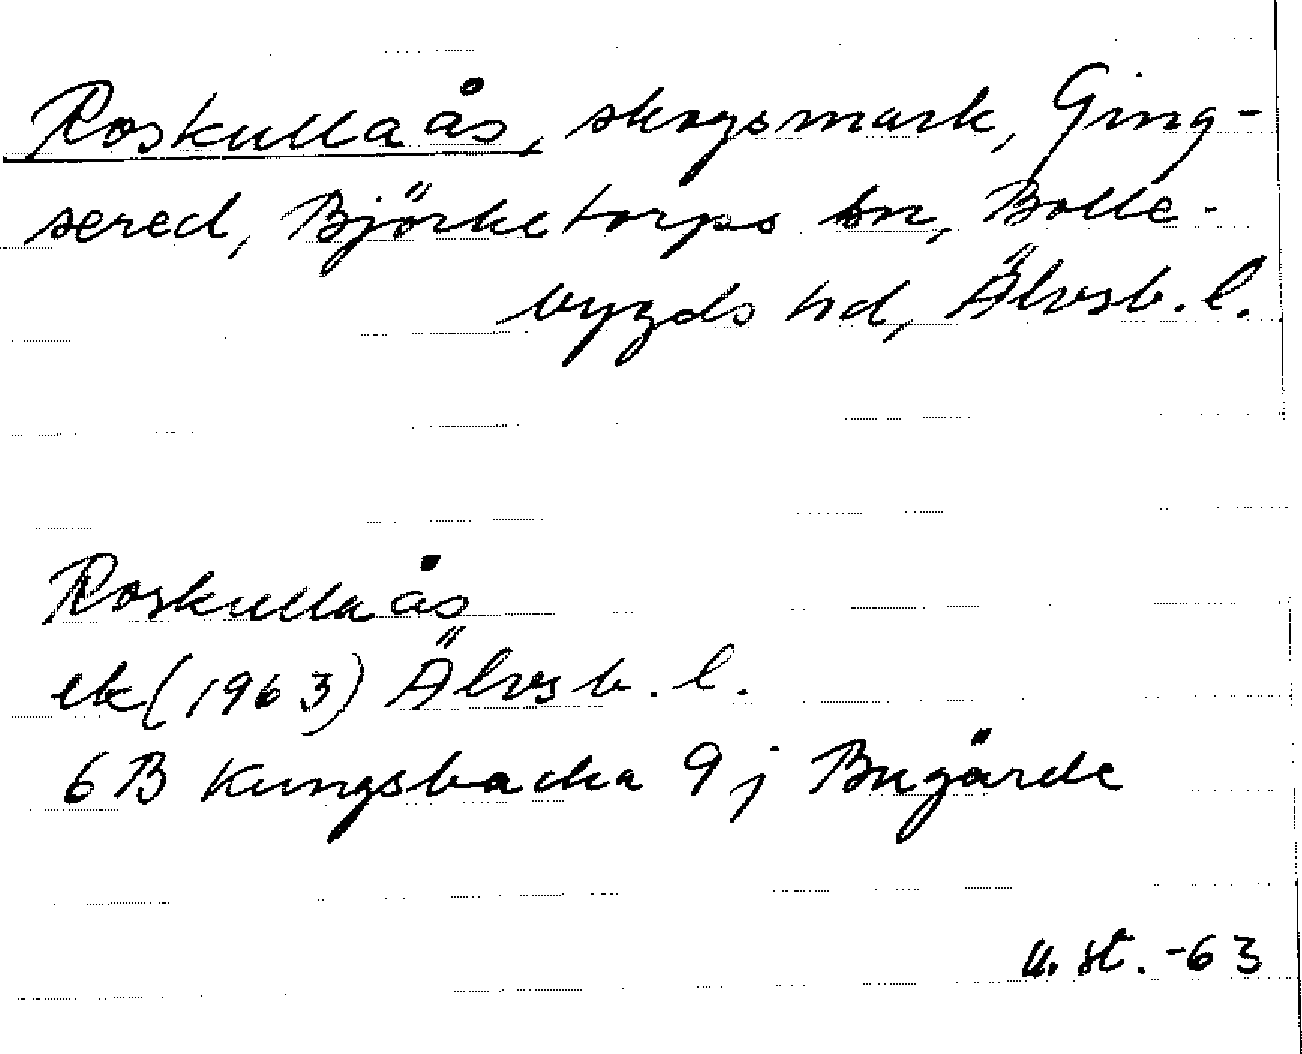 Roskullaås, skogsmark, Ging-
sered, Björketorps sn, Bolle-
bygds hd, Älvsb. l.
Roskullaås
ek (1963) Älvsb. l.
6B Kungsbacka 9j Bugärde
u. st. -63